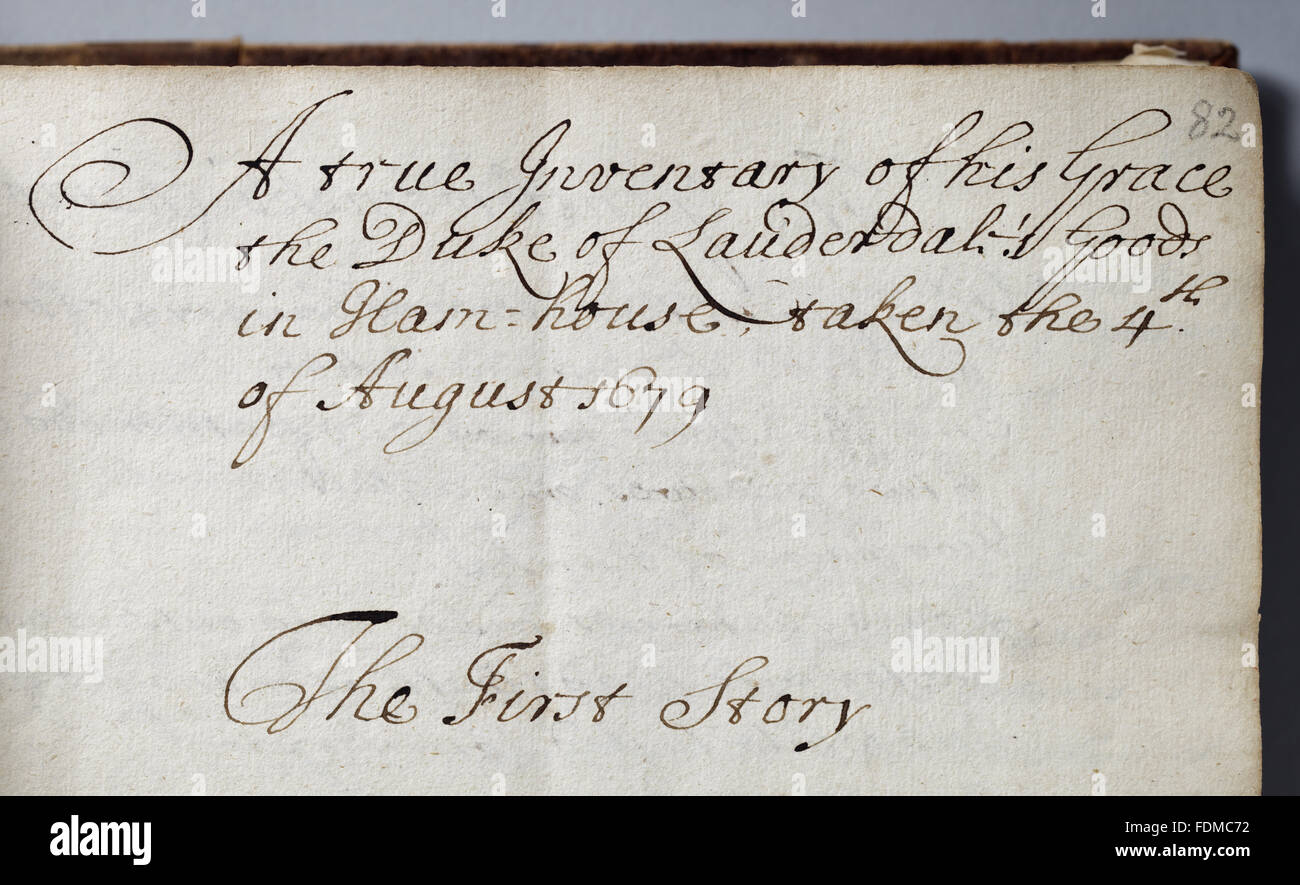 82
A true Inventary of his Grace
the Duke of Lauderdale's Goods
in Ham=house, taken the 4th.
of August 1679
The First Story
alamy stock photo
FDMC72
www.alamy.com